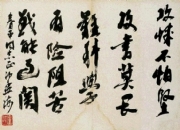 攻城不怕堅
攻書莫畏
難科學
有險阻苦
戰能過關
沙孟海